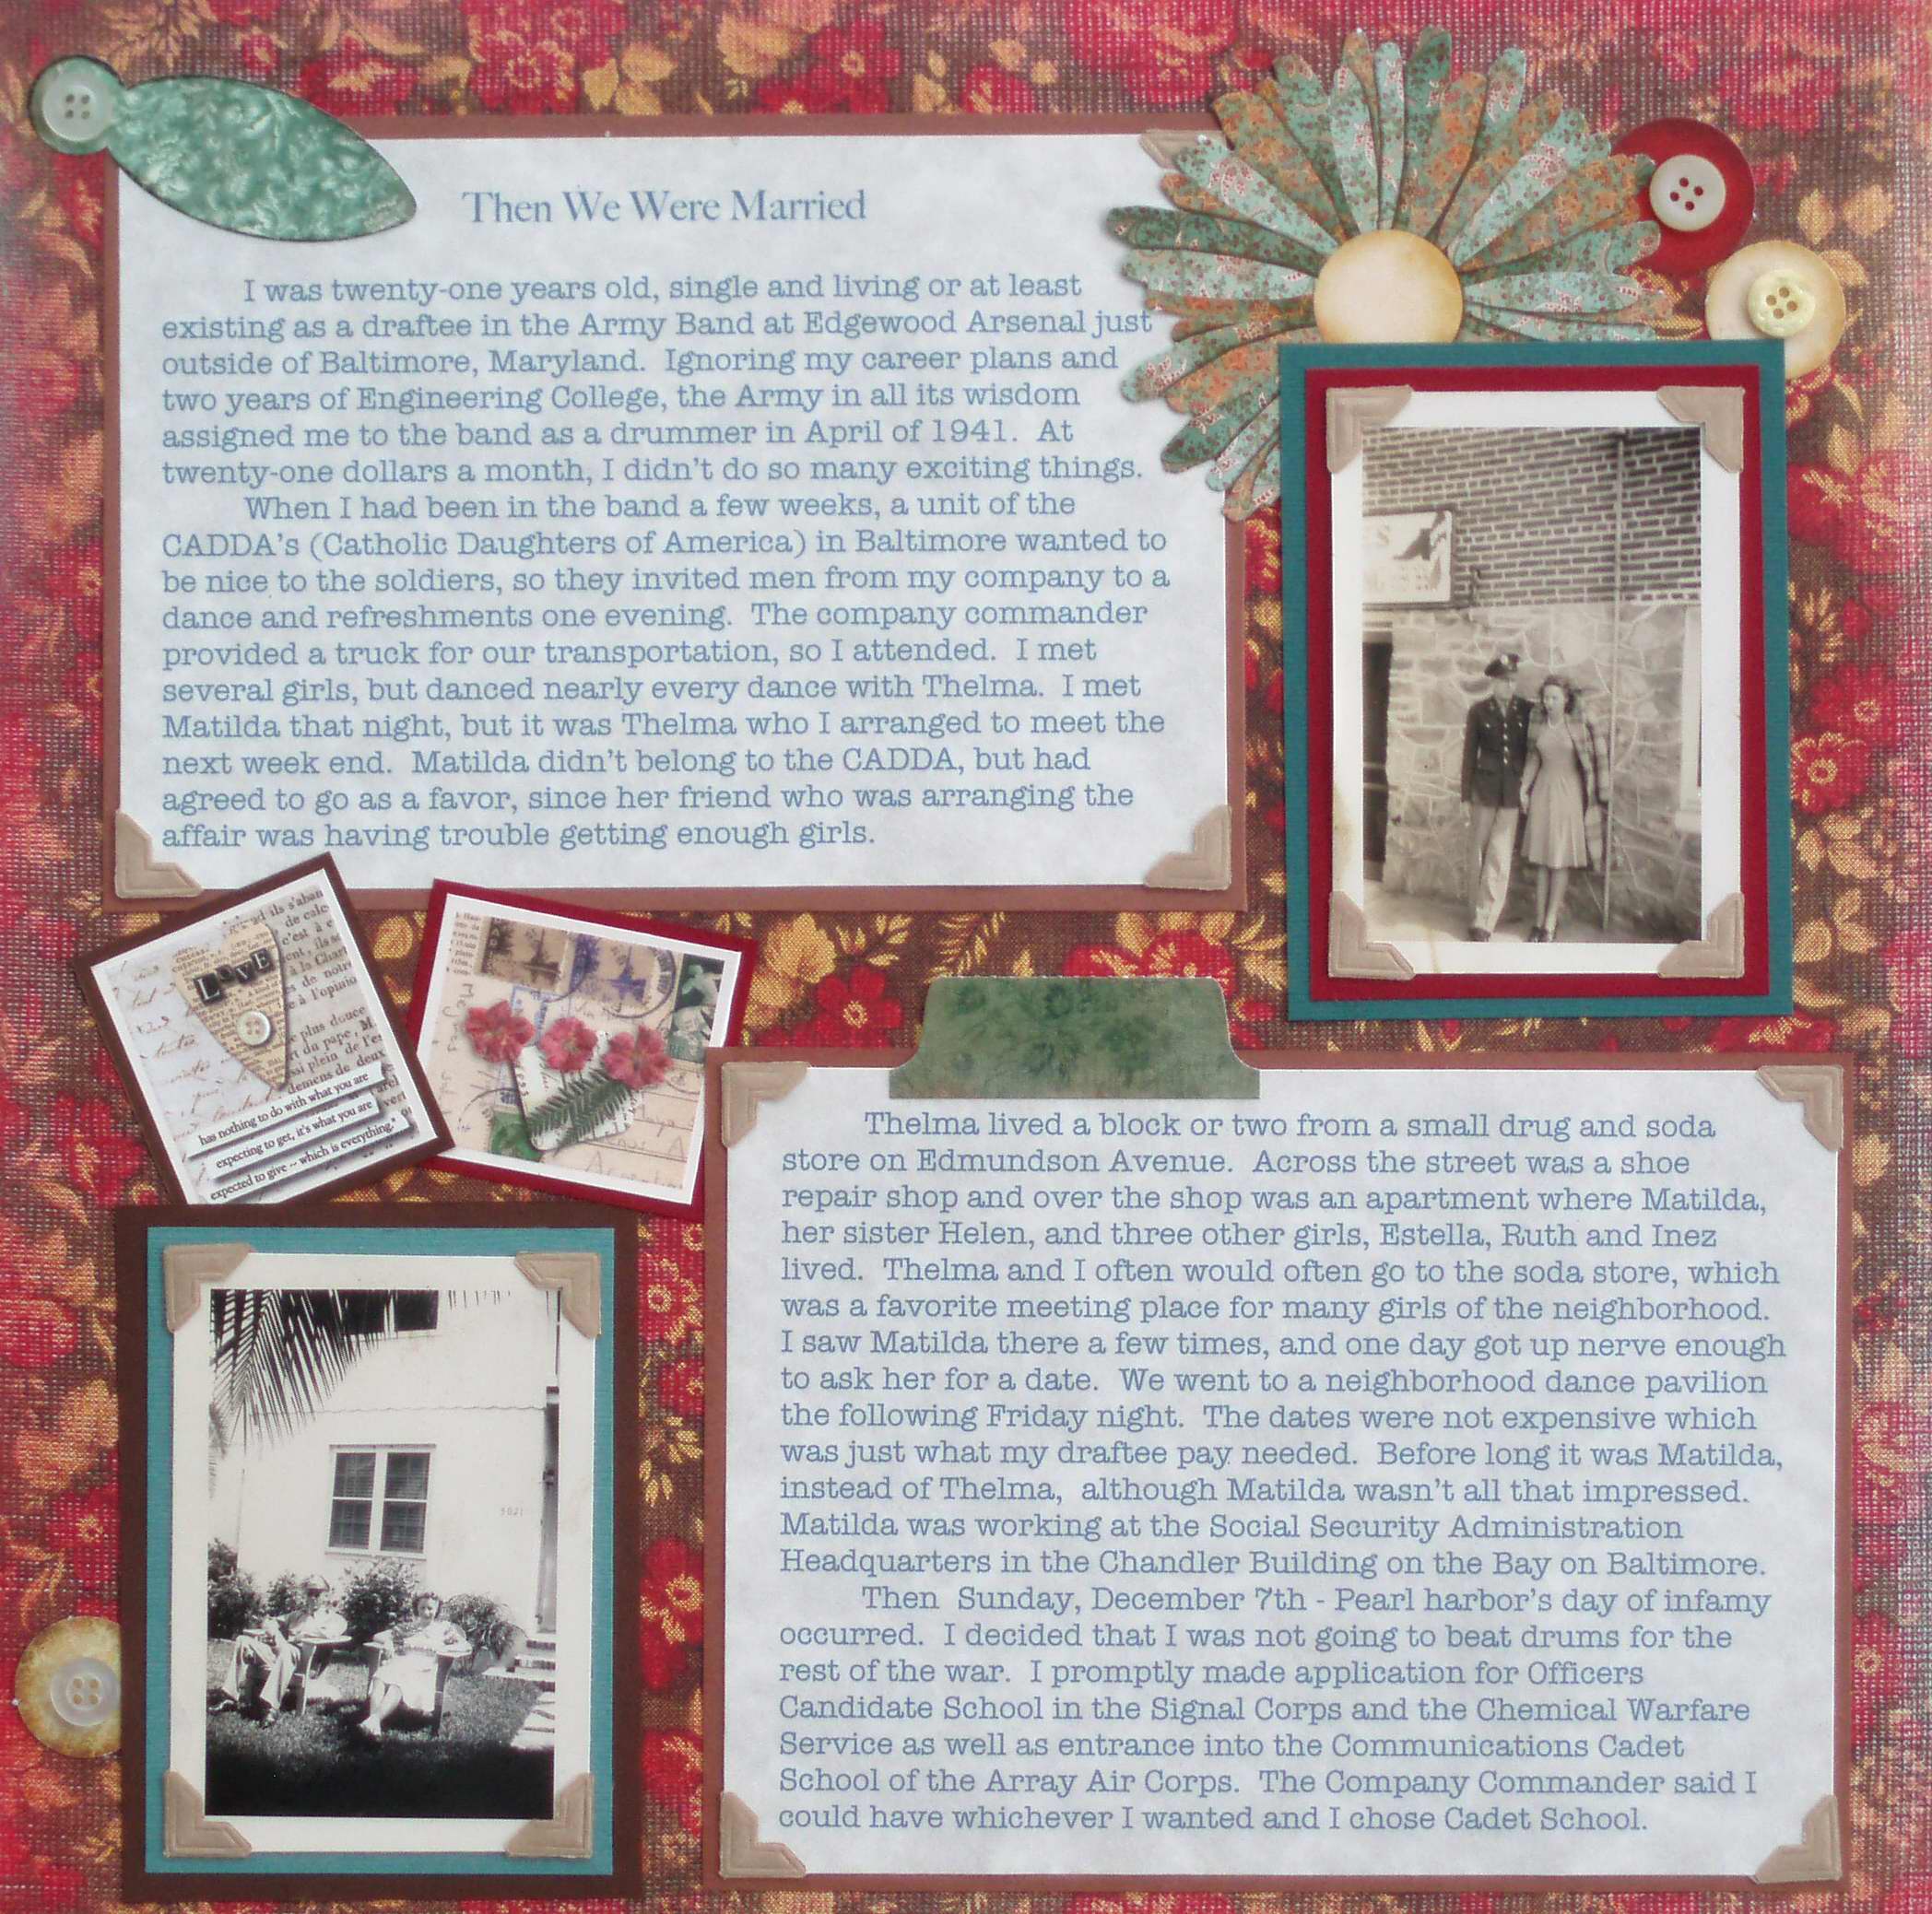 Then We Were Married
I was twenty-one years old, single and living or at least
existing as a draftee in the Army Band at Edgewood Arsenal just
outside of Baltimore, Maryland. Ignoring my career plans and
two years of Engineering College, the Army in all its wisdom
assigned me to the band as a drummer in April of 1941. At
twenty-one dollars a month, I didn't do so many exciting things.
When I had been in the band a few weeks, a unit of the
CADDA's (Catholic Daughters of America) in Baltimore wanted to
be nice to the soldiers, so they invited men from my company to a
dance and refreshments one evening. The company commander
provided a truck for our transportation, so I attended. I met
several girls, but danced nearly every dance with Thelma. I met
Matilda that night, but it was Thelma who I arranged to meet the
next week end. Matilda didn't belong to the CADDA, but had
agreed to go as a favor, since her friend who was arranging the
affair was having trouble getting enough girls.
LOVE
has nothing to do with what you are
expecting to get, it's what you are
expected to give -- which is everything."
Thelma lived a block or two from a small drug and soda
store on Edmundson Avenue. Across the street was a shoe
repair shop and over the shop was an apartment where Matilda,
her sister Helen, and three other girls, Estella, Ruth and Inez
lived. Thelma and I often would often go to the soda store, which
was a favorite meeting place for many girls of the neighborhood.
I saw Matilda there a few times, and one day got up nerve enough
to ask her for a date. We went to a neighborhood dance pavilion
the following Friday night. The dates were not expensive which
was just what my draftee pay needed. Before long it was Matilda,
instead of Thelma, although Matilda wasn't all that impressed.
Matilda was working at the Social Security Administration
Headquarters in the Chandler Building on the Bay on Baltimore.
Then Sunday, December 7th - Pearl harbor's day of infamy
occurred. I decided that I was not going to beat drums for the
rest of the war. I promptly made application for Officers
Candidate School in the Signal Corps and the Chemical Warfare
Service as well as entrance into the Communications Cadet
School of the Array Air Corps. The Company Commander said I
could have whichever I wanted and I chose Cadet School.